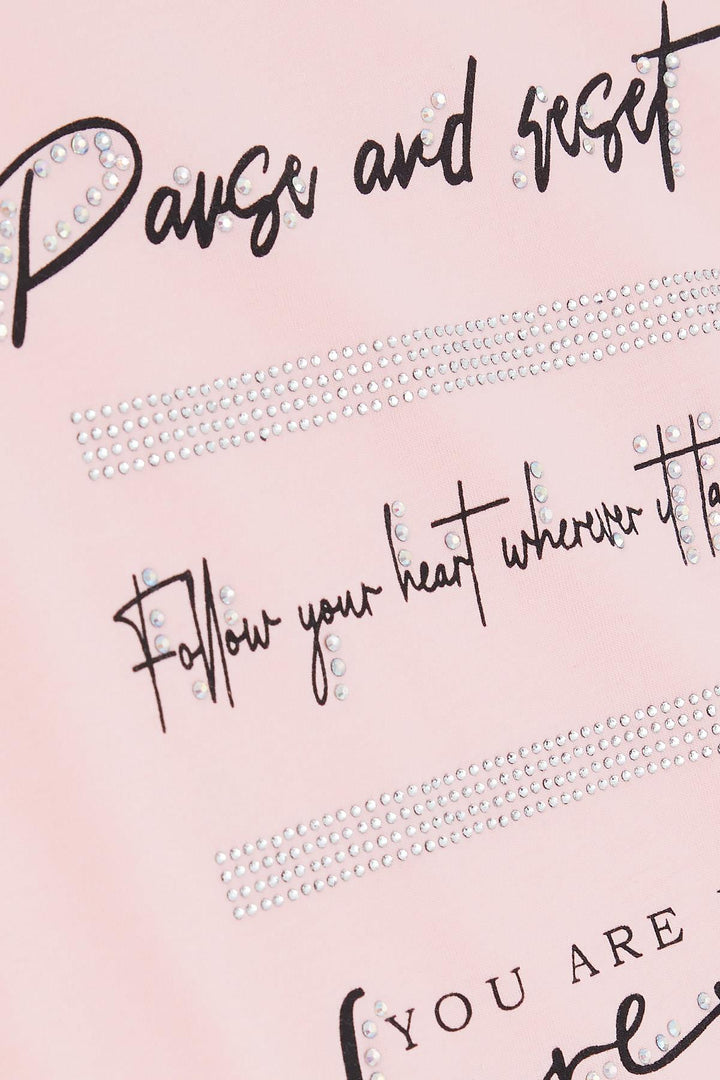 Pause and reset
Follow your heart wherever it
YOU ARE